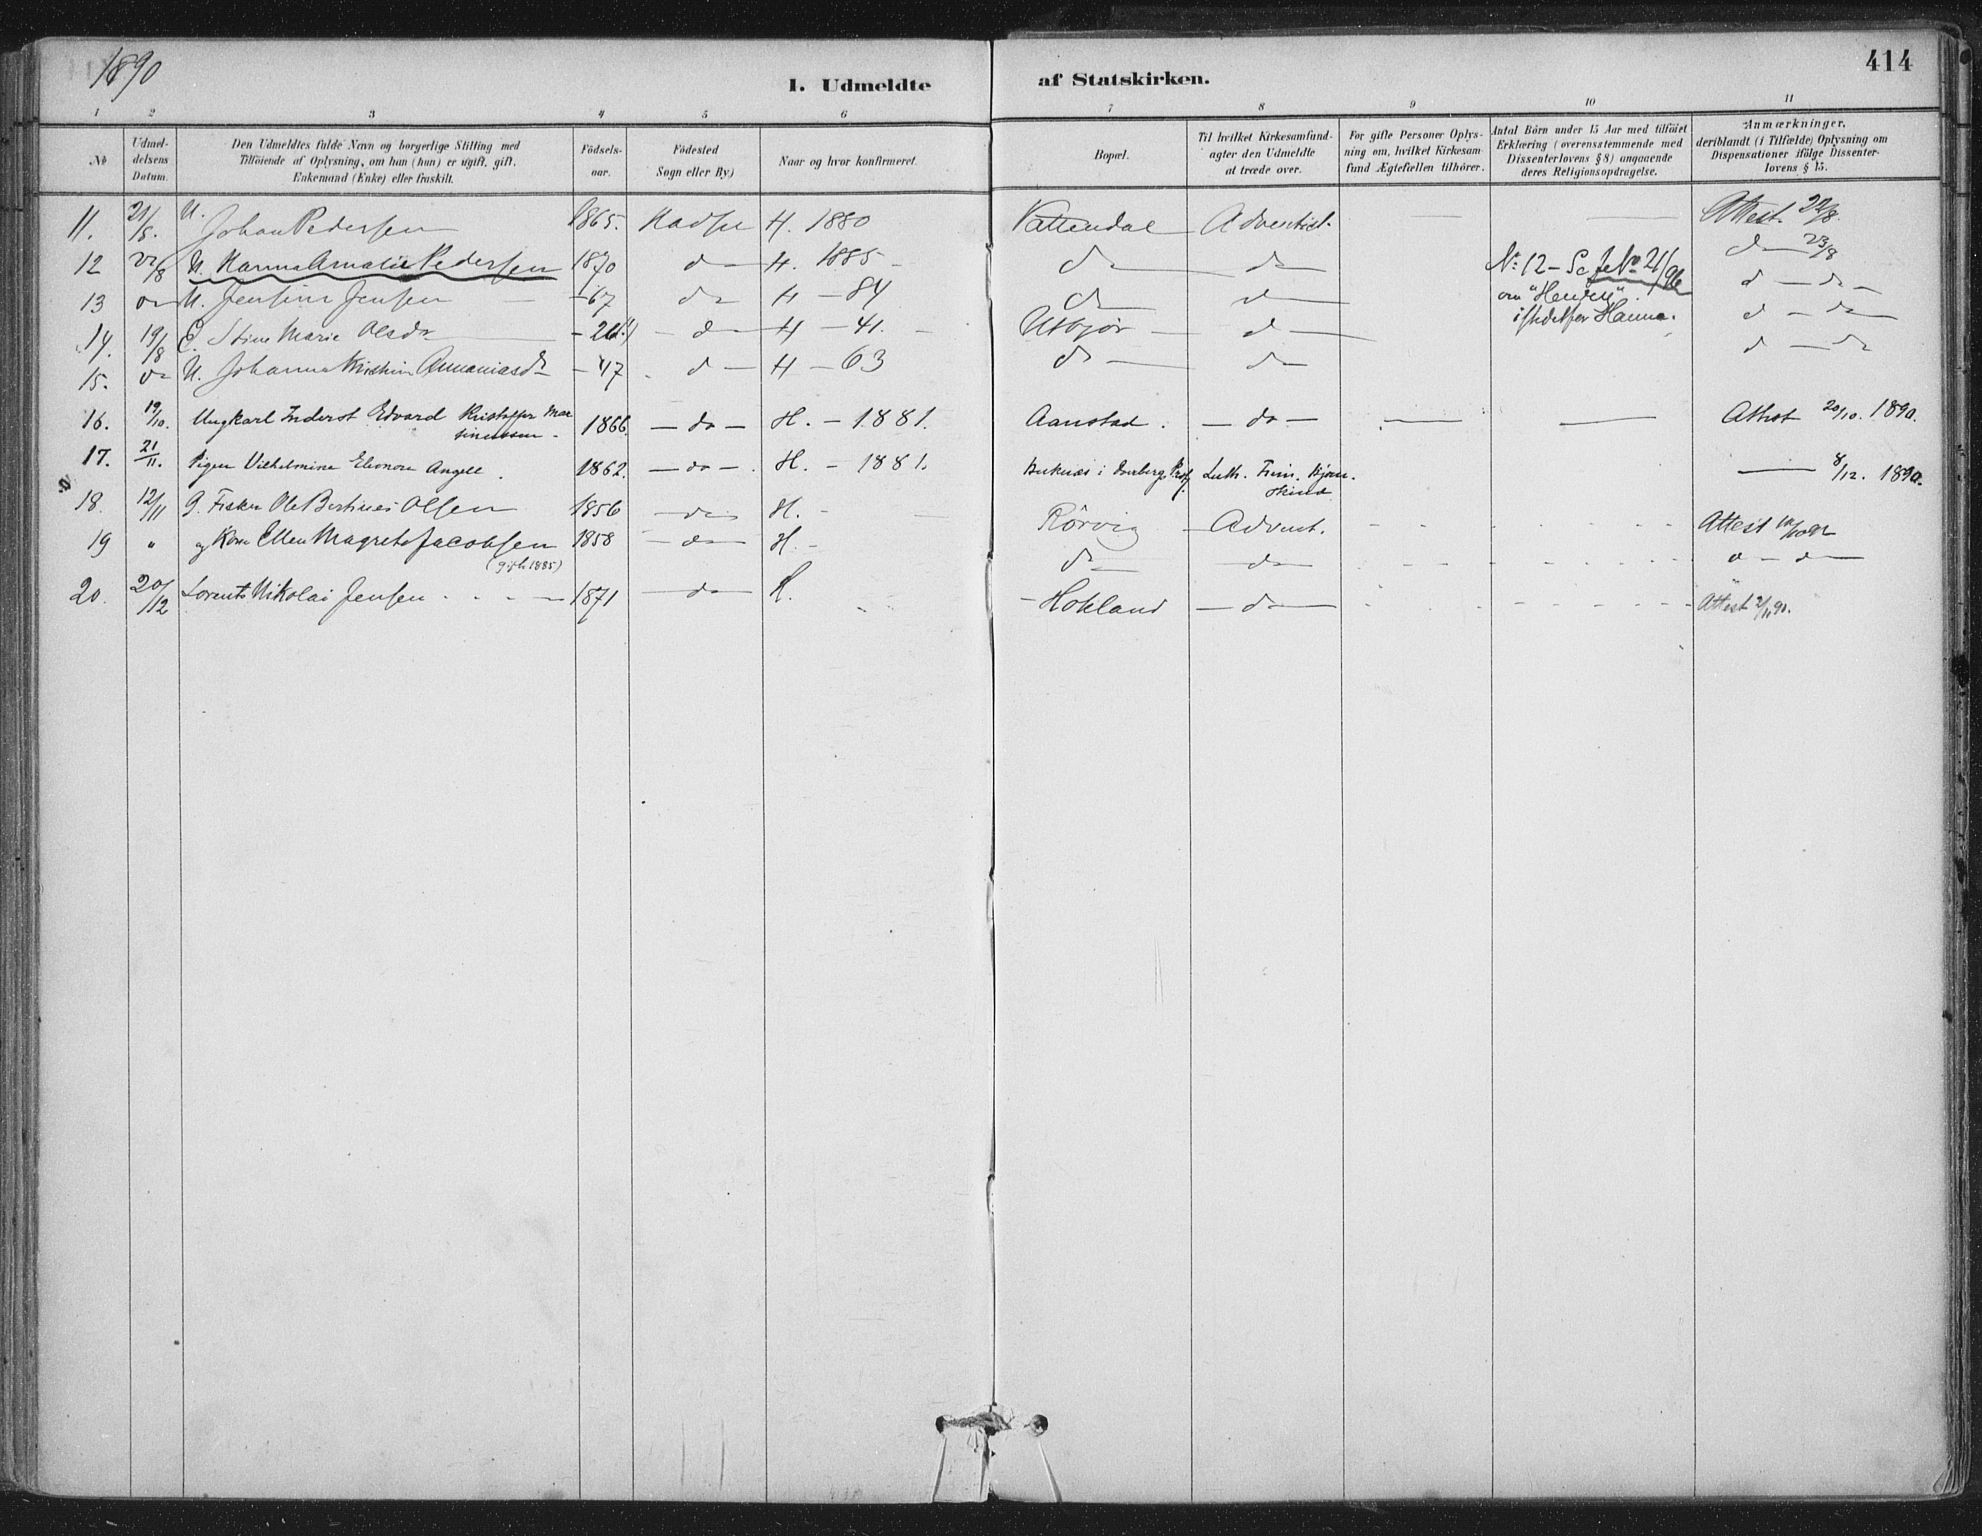 1890
414
1. Udmeldte af Statskirken.
1 2 3 4 5 6 7 8 9 10 11
No
Udmel-
delsens
Datum.
Den Udmeldtes fulde Navn og borgerlige Stilling med
Tilföiende af Oplysning, om han (hun) er ugift, gift,
Enkemand (Enke) eller fraskilt.
Födsels-
aar.
Födested
Sogn eller By)
Naar og hvor konfirmeret.
Bopæl.
Til hvilket Kirkesamfund
agter den Udmeldte
at træde over.
For gifte Personer Oplys-
ning om, hvilket Kirkesam-
fund Ægtefællen tilhörer.
Antal Börn under 15 Aar med tilföiet
Erklæring (overensstemmende med
Dissenterlovens § 8) angaaende
deres Religionsopdragelse.
Anmærkninger,
deriblandt (i Tilfælde) Oplysning om
Dispensationer ifölge Dissenter-
lovens § 15.
11. 21/8. U. Johan Pedersen 1865. Hadsel H. 1880 Vattendal Adventist. — — Attest 22/8.
12 22/8 U. Hanna Amalie Pedersen 1870 do H. 1885 do do No 12 – Se No 21/96 do 23/8
13 do U. Jensine Jensen – 67 do H – 84 do do om "Henden" d – do –
14 19/8 E. Stine Marie Olsdr – 26 – d – H – 41. Utbjör – d – istedetfor Hanna. d – do
15. do U. Johanna Kristine Ananiasdr – 47 . d – H – 63 do – do d – do
16. 19/10. Ungkarl Inderst Edvard Kristoffer Mar
sinussen. 1866. — do — H. – 1881. Aanstad . — do — — — Attest 20/10. 1890.
17. 21/11. Pigen Vilhelmine Eleonore Angell . 1862. — do — . H. – 1881. Buknæs i Borge Prgj. Luth. Frim. Björn-
skind — 8/12. 1890.
18. 12/11 G. Fisker Ole Bertines Olsen 1856 — do H. – Rörvig – Advent. Attest
19 " og Kone Ellen Magrete Jacobsen 1858 – do – H. – do – do – d – do
(gift 1885)
20. 20/12 Lorents Nikolai Jensen 1871 — do – H. – Hokland – do – Attest